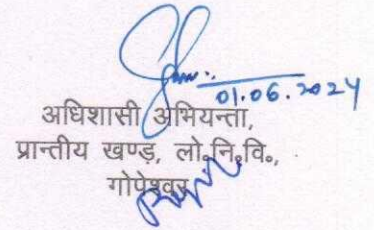 01.06.2024
अधिशासी अभियन्ता,
प्रान्तीय खण्ड़, लो॰नि॰वि॰,
गोपेश्वर